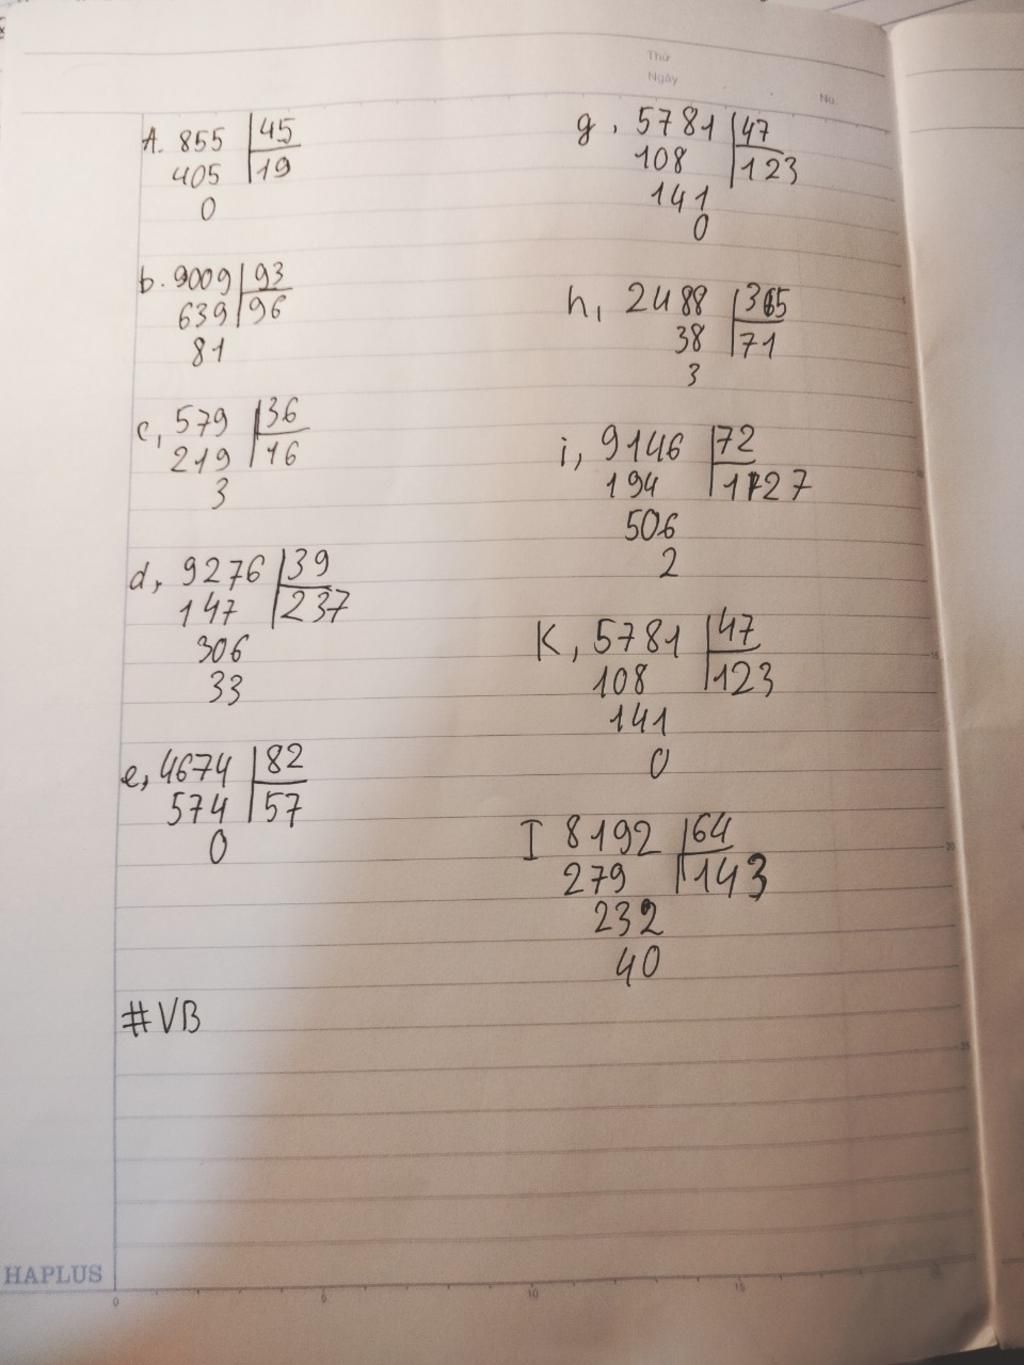 Thứ
Ngày
No.
A. 855 | 45
405 | 19
0
b. 9009 | 93
639 | 96
81
c, 579 | 36
219 | 16
3
d, 9276 | 39
147 | 237
306
33
e, 4674 | 82
574 | 57
0
#VB
g, 5781 | 47
108 | 123
141
0
h, 2488 | 35
38 | 71
3
i, 9146 | 72
194 | 127
506
2
K, 5781 | 47
108 | 123
141
0
I 8192 | 64
279 | 143
232
40
HAPLUS
0 5 10 15 20